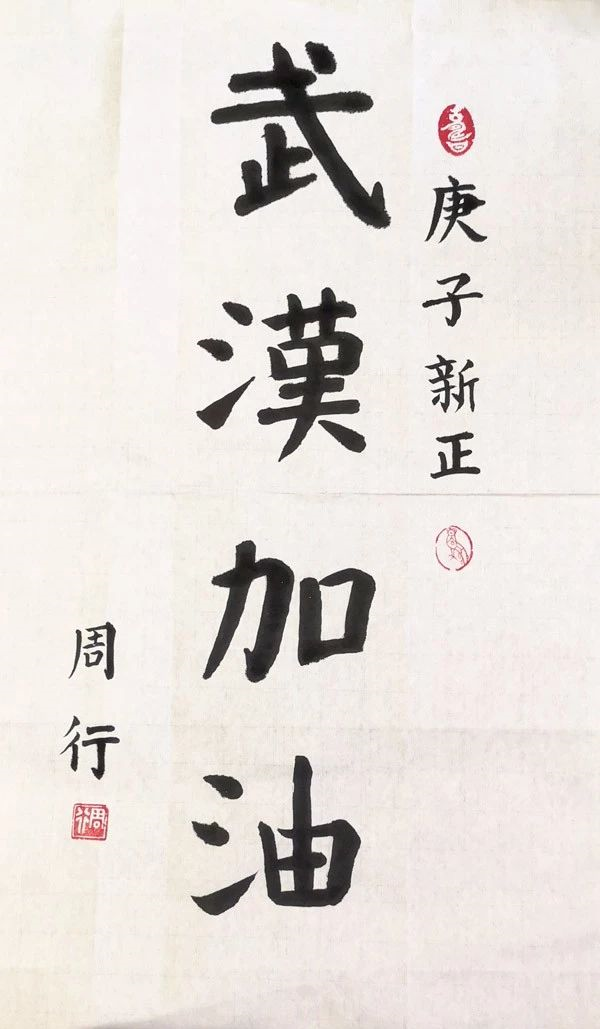 庚子新正
武漢加油
周行
周行